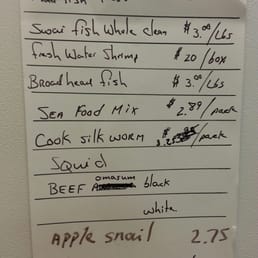 Swai fish whole clean $3.00/Lbs
fresh water shrimp $20/box
Broadhead fish $3.00/Lbs
SEA Food Mix $2.89/pack
Cook silk worm $ /pack
Squid
BEEF omasum black
white
Apple snail 2.75